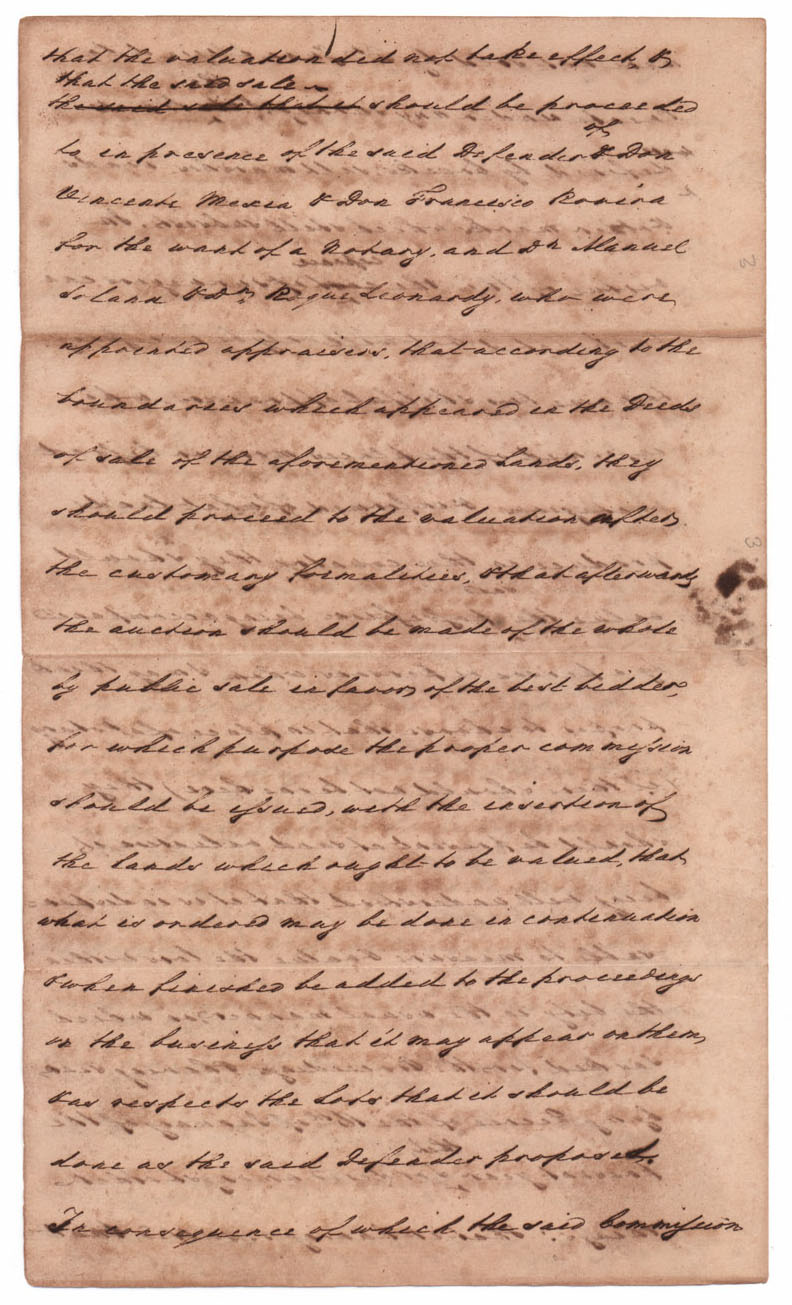 that the valuation did not take effect, &
that the said sale
the said sale that it should be proceeded
of
to in presence of the said Defender & Don
Vincente Mexia & Don Francisco Rovira
for the want of a Notary, and Dn Manuel
Solana & Dn Roque Leonardy, who were
appointed appraisers, that according to the
boundaries which appeared in the Deeds
of sale of the aforementioned Lands, they
should proceed to the valuation after
the customary formalities, & that afterwards
the auction should be made of the whole
by public sale in favor of the best bidder,
for which purpose the proper commission
should be issued, with the insertion of
the lands which ought to be valued, that
what is ordered may be done in continuation
& when finished be added to the proceedings
in the business that it may appear on them,
& as respects the Lots that it should be
done as the said Defender proposes.
In consequence of which the said Commission